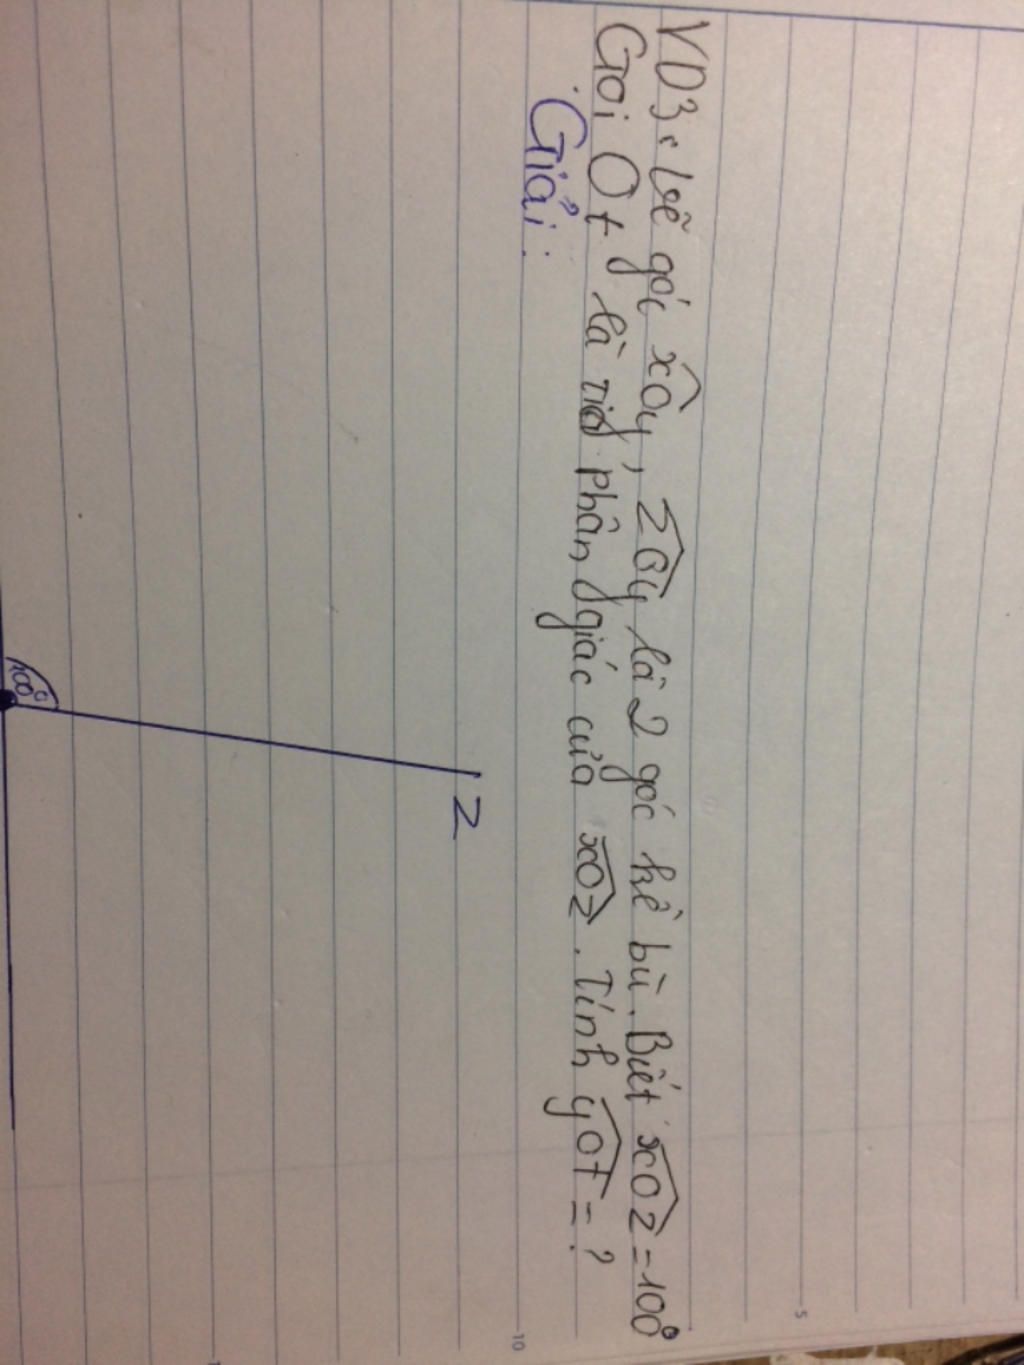 VD3: Vẽ góc xÔy, zÔy là 2 góc kề bù. Biết xÔz = 100°
Gọi Ot là tia phân giác của xÔz. Tính yÔt = ?
Giải:
z
100°
5
10